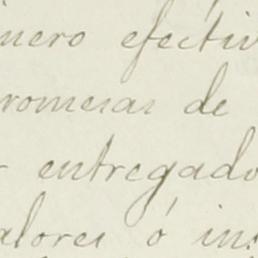 inero efectiv
romesas de
r entregado
alores ó ins